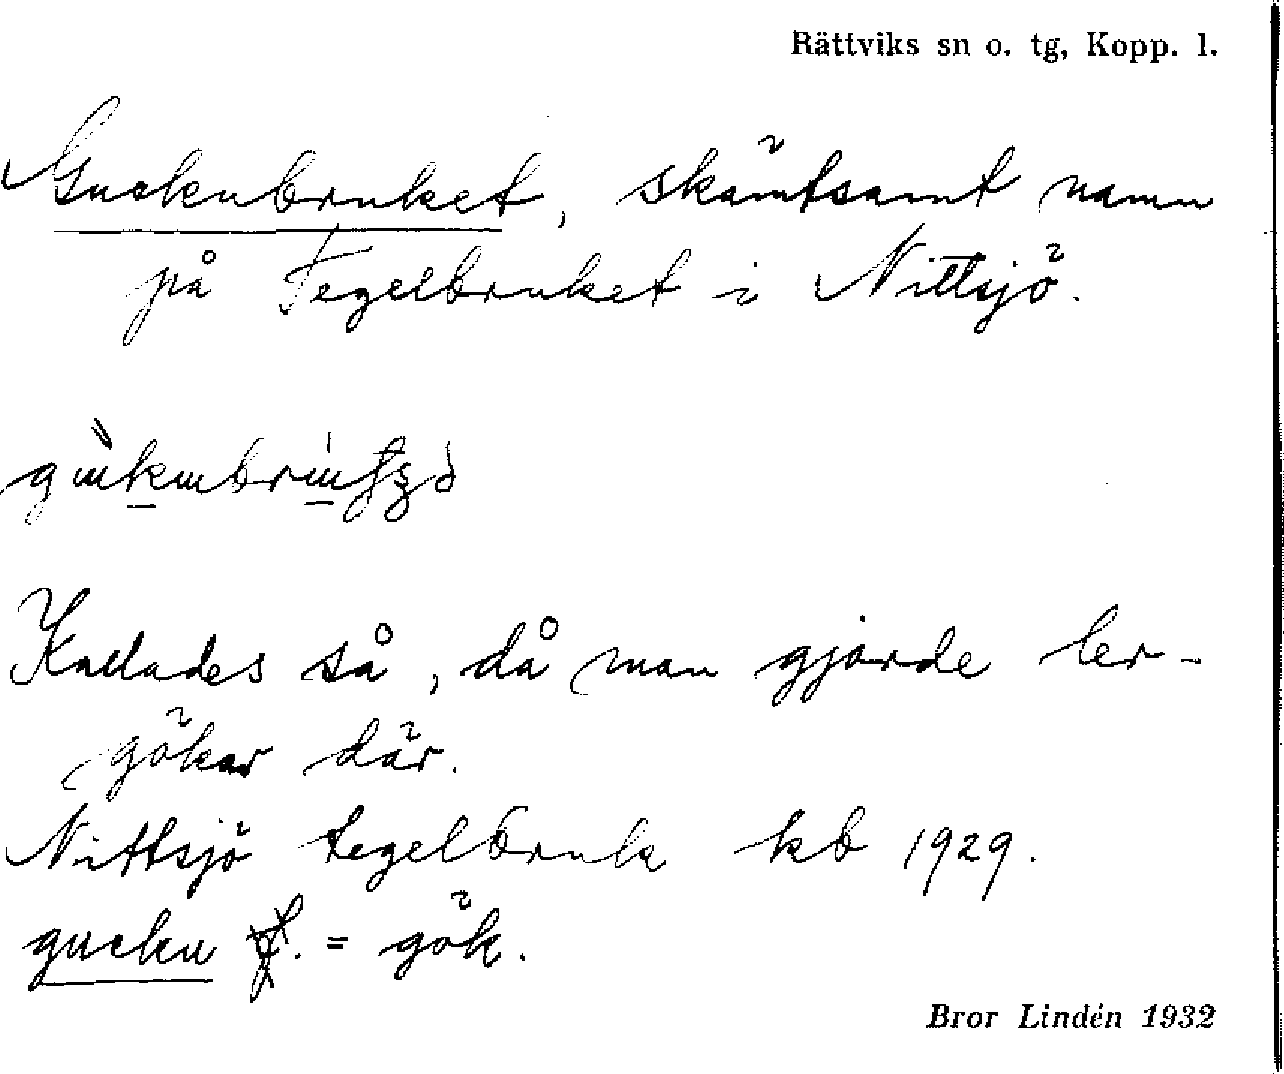 Rättviks sn o. tg, Kopp. l.
Guckubruket, skämtsamt namn
på Tegelbruket i Nittsjö.
Kallades så, då man gjorde ler-
gökar där.
Nittsjö tegelbruk kb 1929.
gucku f. = gök.
Bror Lindén 1932